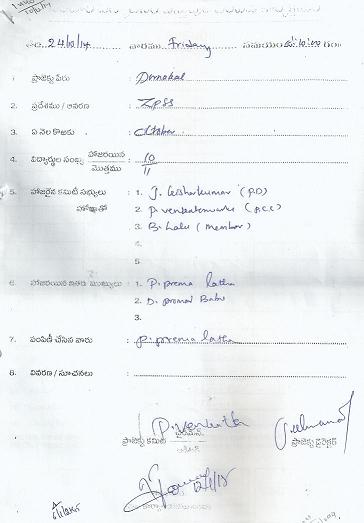 తేది 24/10/14 వారము Friday సమయం 10:00 గం
1. ప్రాజెక్టు పేరు : Dornakal
2. ప్రదేశము / ఆవరణ : ZPSS
3. ఏ నెల కొఱకు : October
4. విద్యార్థుల సంఖ్య హాజరయిన : 10
మొత్తము 11
5. హాజరైన కమిటీ సభ్యులు : 1. J. Kishorkumar (P.D)
హోదాతో 2. P. Venkateswarlu (P.C.C)
3. B. Lalu (Member)
4.
5.
6. హాజరయిన ఇతర ముఖ్యులు : 1. P. prema latha
2. D. promod Babu
3.
7. పంపిణీ చేసిన వారు : P. prema latha
8. వివరణ / సూచనలు :
P. Venkata
ప్రాజెక్టు కమిటీ చైర్మెన్ ప్రాజెక్టు డైరెక్టర్